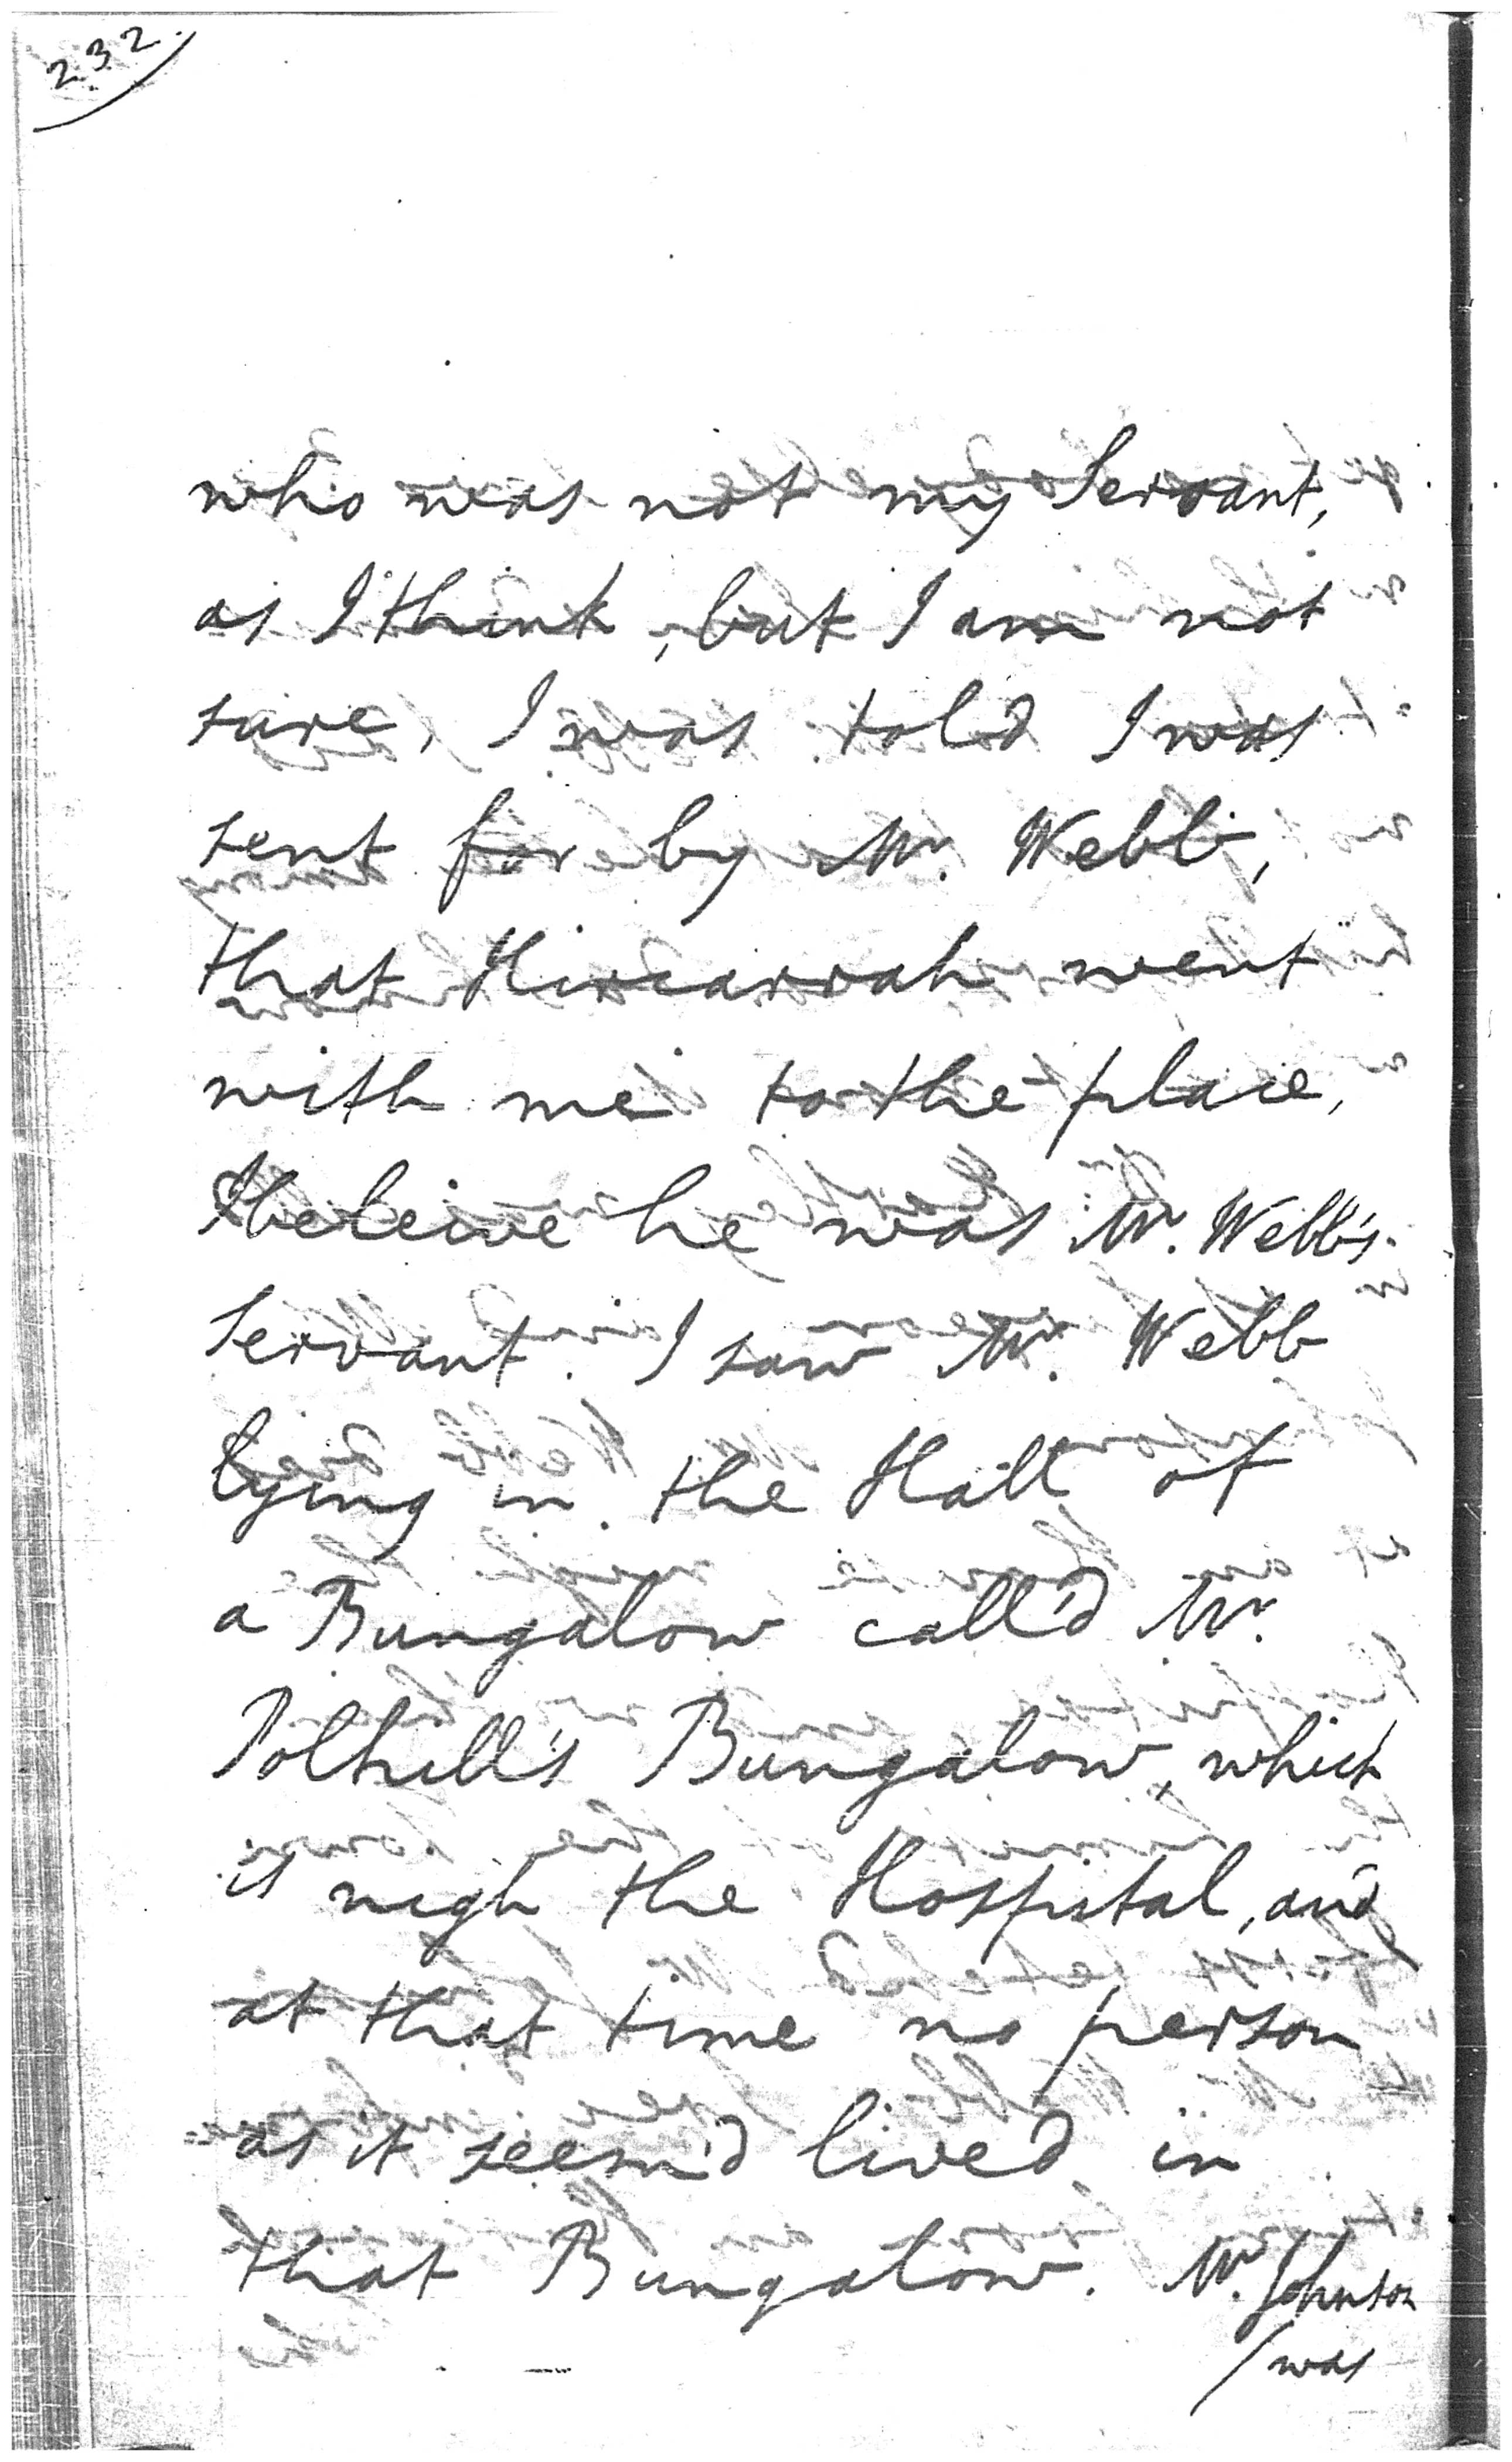 232
who was not my Servant,
as I think, but I am not
sure, I was told I was
sent for by Mr. Webb,
that Hircarrah went
with me to the place,
I beleive he was Mr. Webb's
Servant. I saw Mr. Webb
lying in the Hall of
a Bungalow call'd Mr.
Polhill's Bungalow, which
is nigh the Hospital, and
at that time no person
as it seem'd lived in
that Bungalow. Mr. Johnson
/was